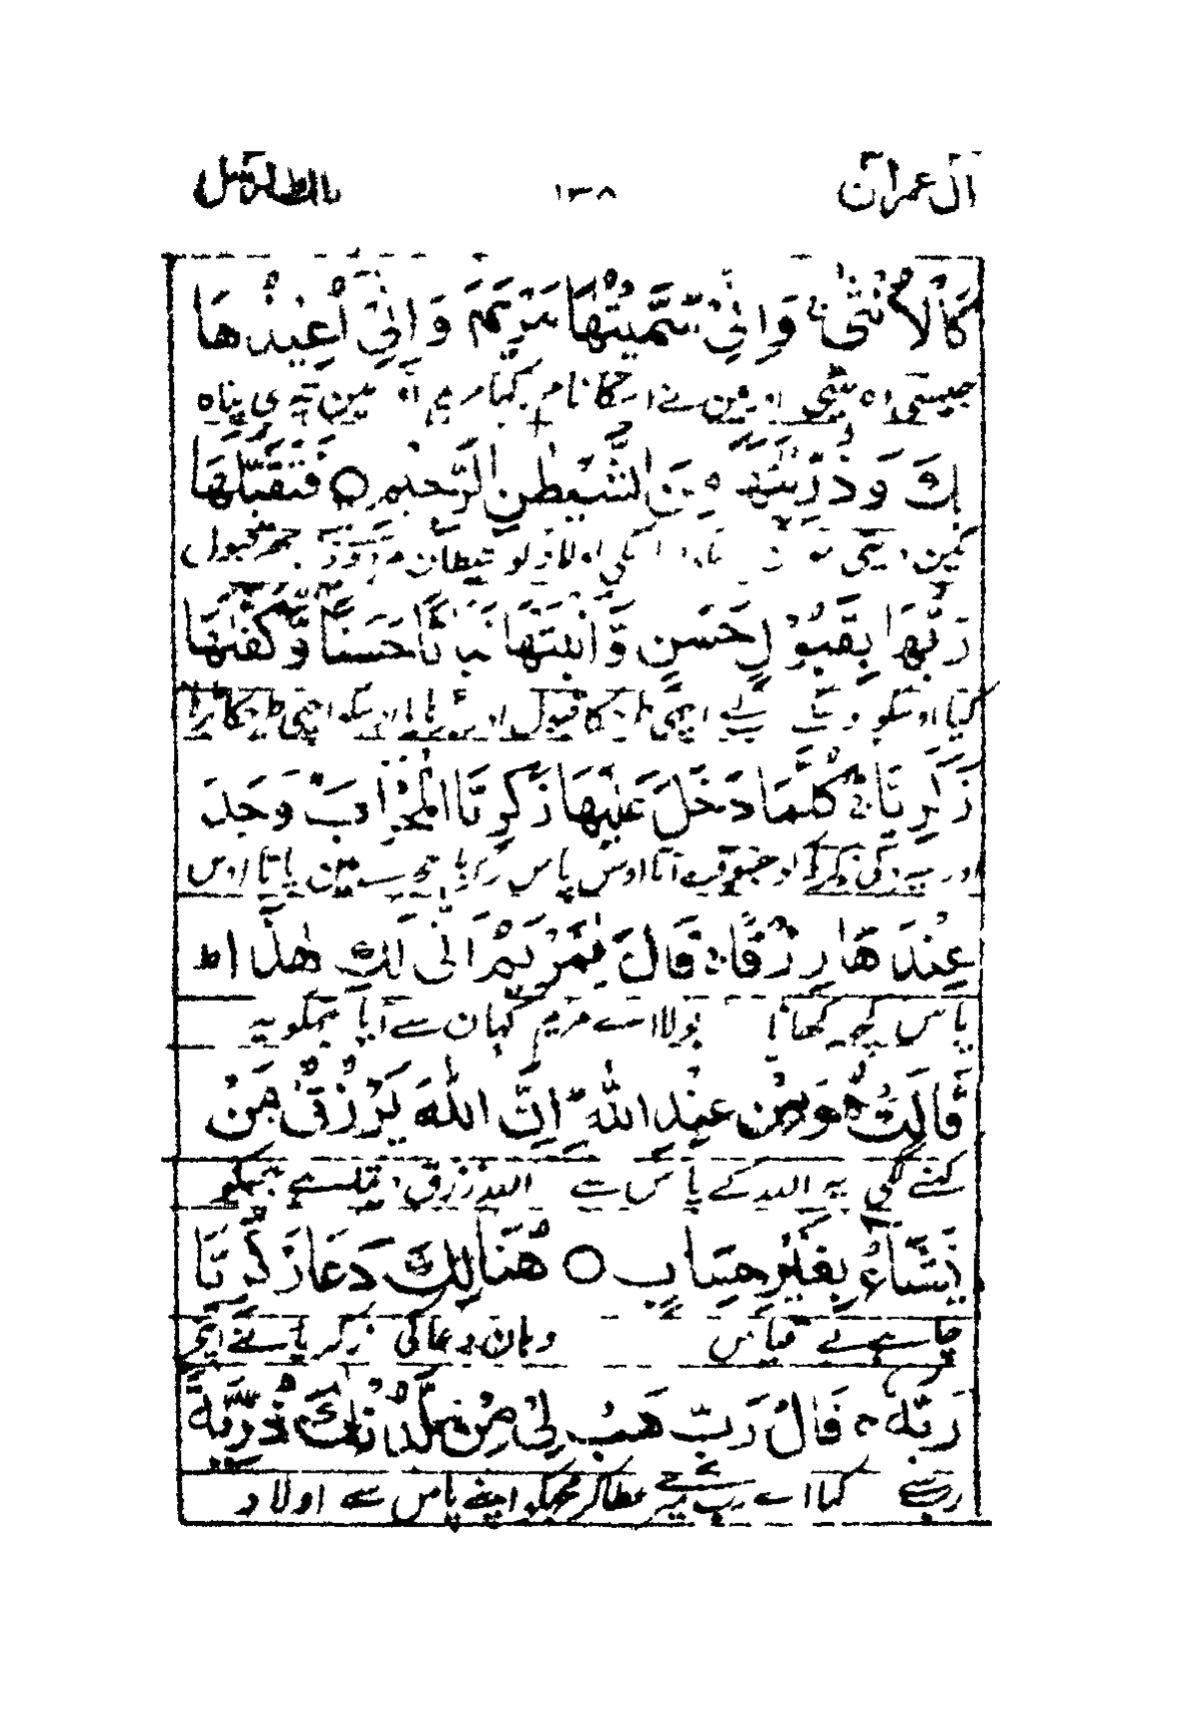 اٰل عمران ١٣٨ تلك الرسل
كَالْاُنْثٰى ۚ وَاِنِّىْ سَمَّيْتُهَا مَرْيَمَ وَاِنِّىْٓ اُعِيْذُهَا
جیسی وہ بیٹی اور مین نے اسکا نام رکہا مریم اور مین تیری پناہ
بِكَ وَذُرِّيَّتَهَا مِنَ الشَّيْطٰنِ الرَّجِيْمِ ○ فَتَقَبَّلَهَا
مین دیتی اسکی اولاد کو شیطان مردود سے پھر قبول
رَبُّهَا بِقَبُوْلٍ حَسَنٍ وَّاَنْۢبَتَهَا نَبَاتًا حَسَنًا وَّكَفَّلَهَا
کیا اوسکو رب نے اچھی طرح کا قبول اور بڑہایا اوسکو اچھی طرح کا بڑہانا
زَكَرِيَّا ۚ كُلَّمَا دَخَلَ عَلَيْهَا زَكَرِيَّا الْمِحْرَابَ وَجَدَ
اور سپرد کی زکریا کے جسوقت آتا اوس پاس زکریا محراب مین پاتا اوس
عِنْدَهَا رِزْقًا ۚ قَالَ يٰمَرْيَمُ اَنّٰى لَكِ هٰذَا ط
پاس کچہہ کھانا بولا اے مریم کہان سے آیا تجکو یہ
قَالَتْ هُوَ مِنْ عِنْدِ اللّٰهِ ط اِنَّ اللّٰهَ يَرْزُقُ مَنْ
کہنے لگی یہ اللہ کے پاس سے اللہ رزق دیتا ہے جسکو
يَّشَآءُ بِغَيْرِ حِسَابٍ ○ هُنَالِكَ دَعَا زَكَرِيَّا
چاہے بے قیاس وہان دعا کی زکریا نے اپنے
رَبَّهٗ ۚ قَالَ رَبِّ هَبْ لِىْ مِنْ لَّدُنْكَ ذُرِّيَّةً
رب سے کہا اے رب میرے عطا کر مجکو اپنے پاس سے اولاد